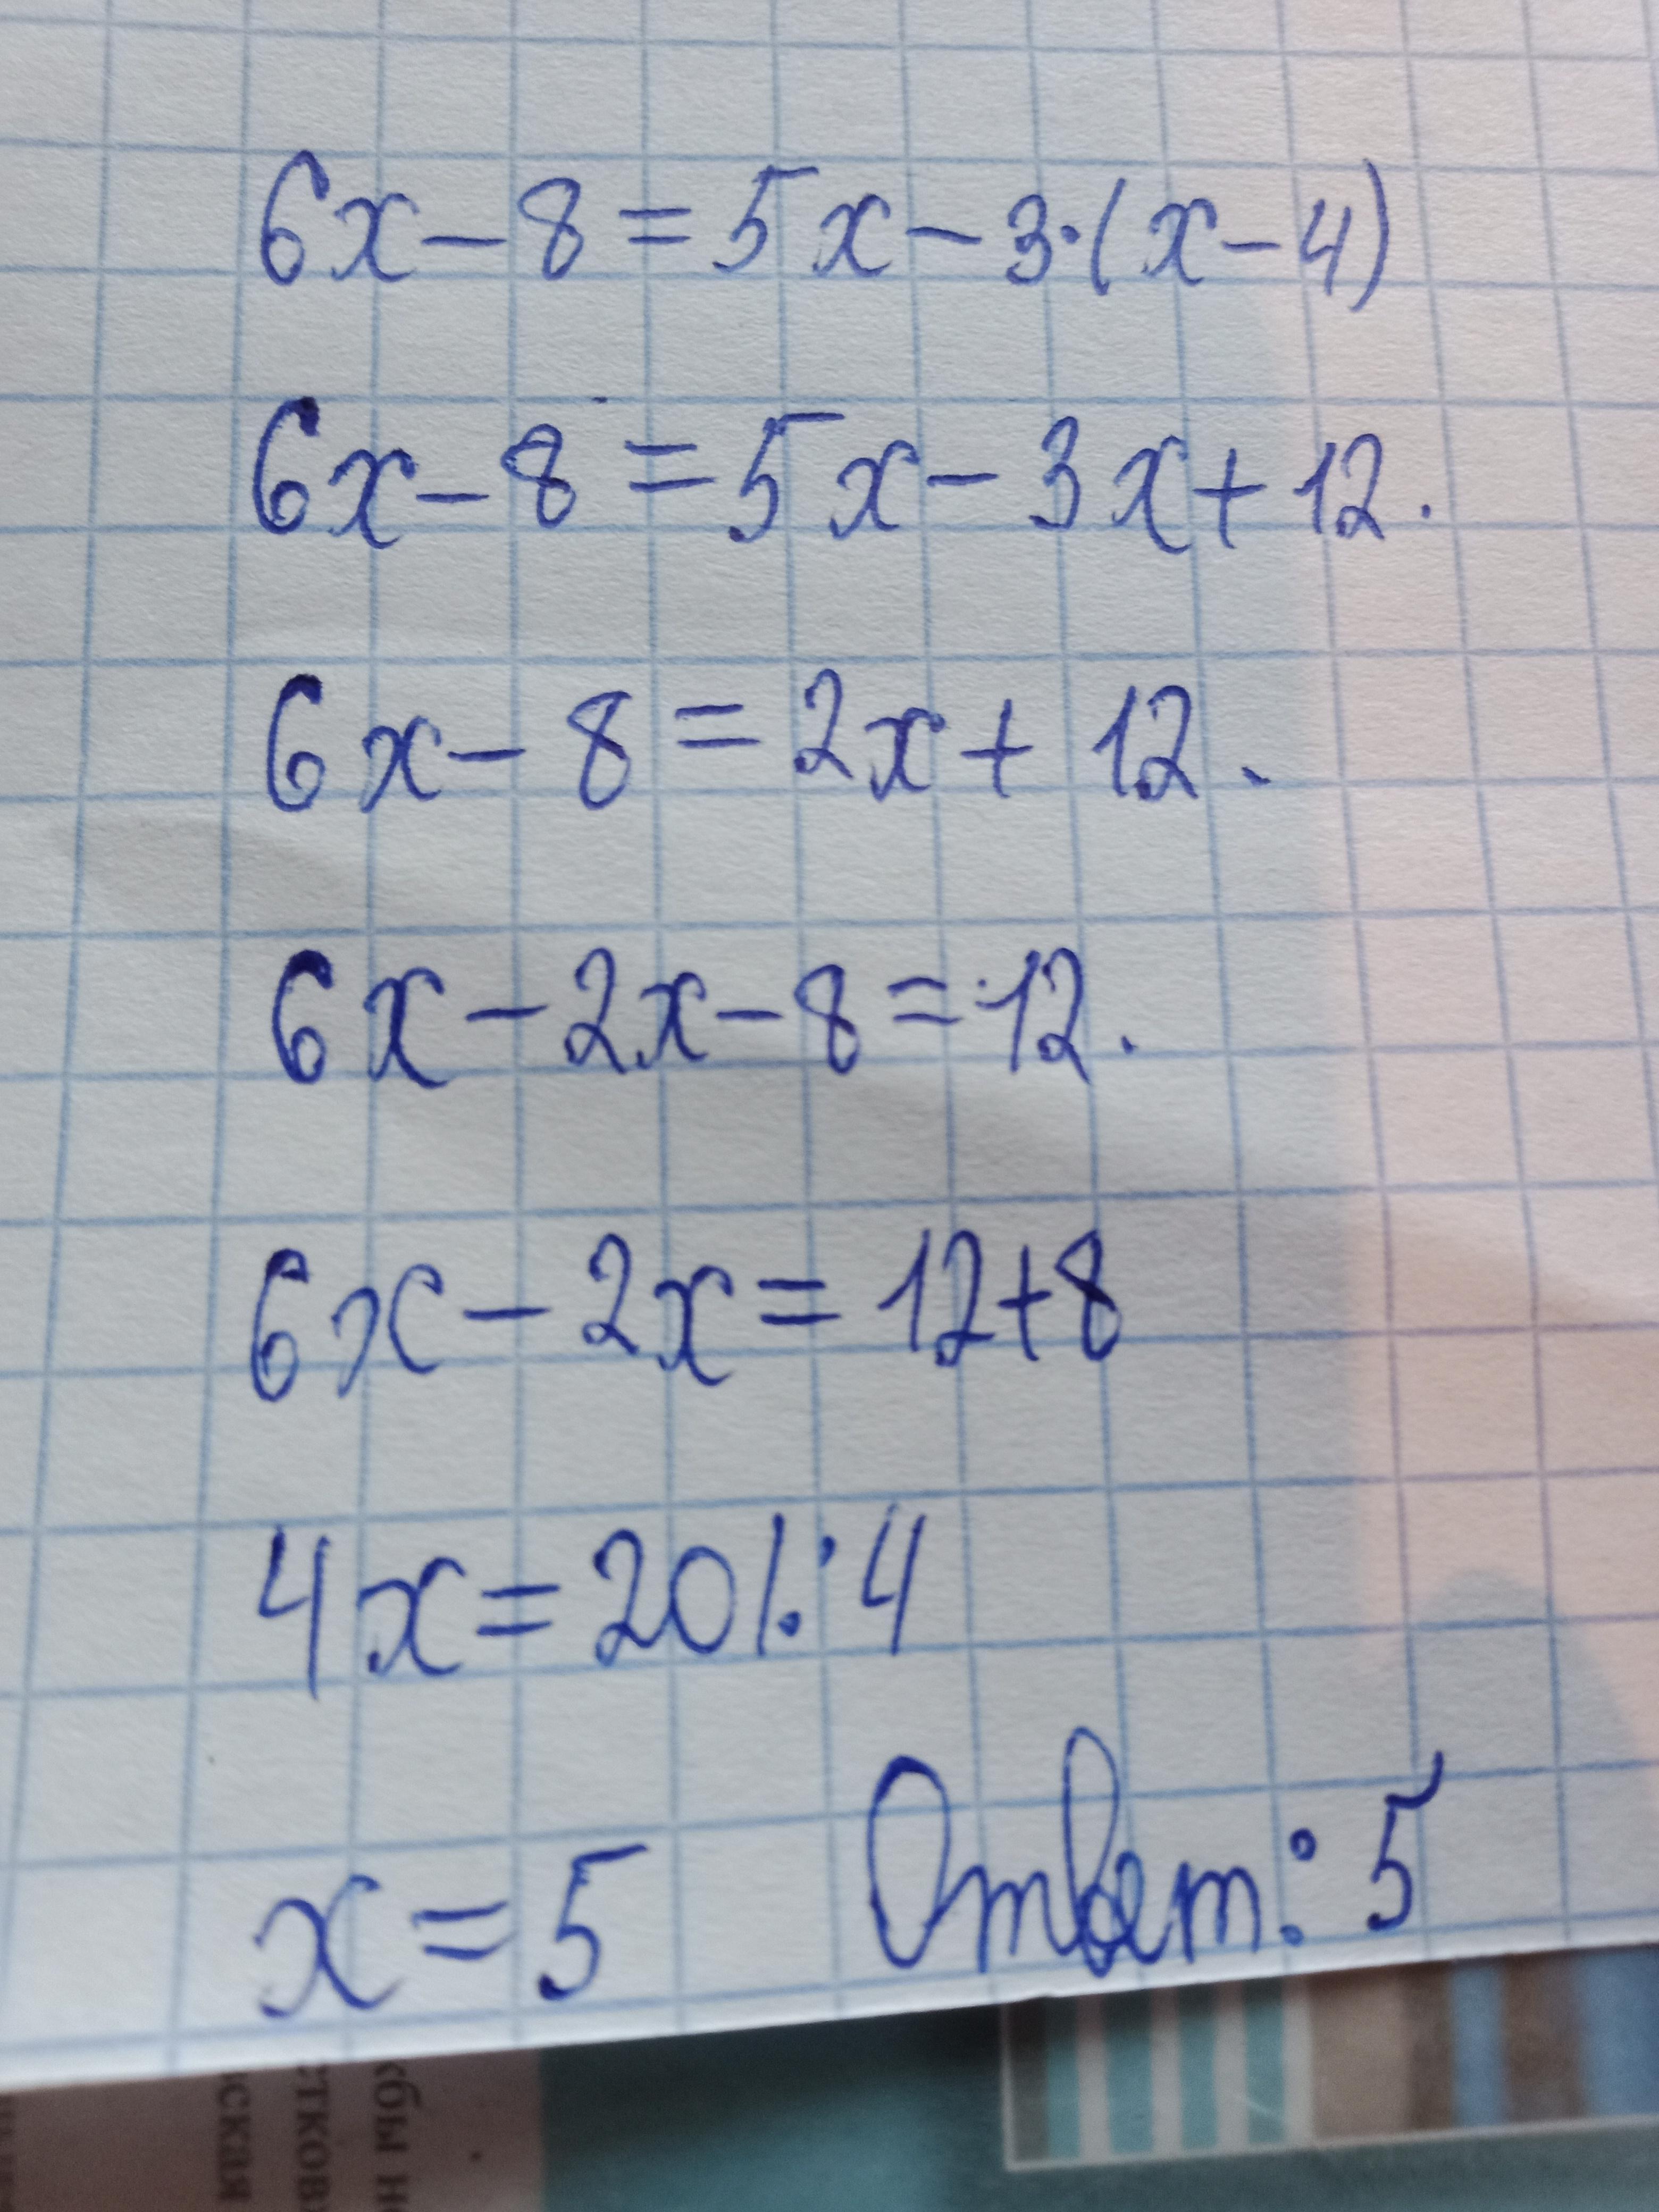 6x-8=5x-3·(x-4)
6x-8=5x-3x+12.
6x-8=2x+12.
6x-2x-8=12.
6x-2x=12+8
4x=20|:4
x=5 Ответ: 5